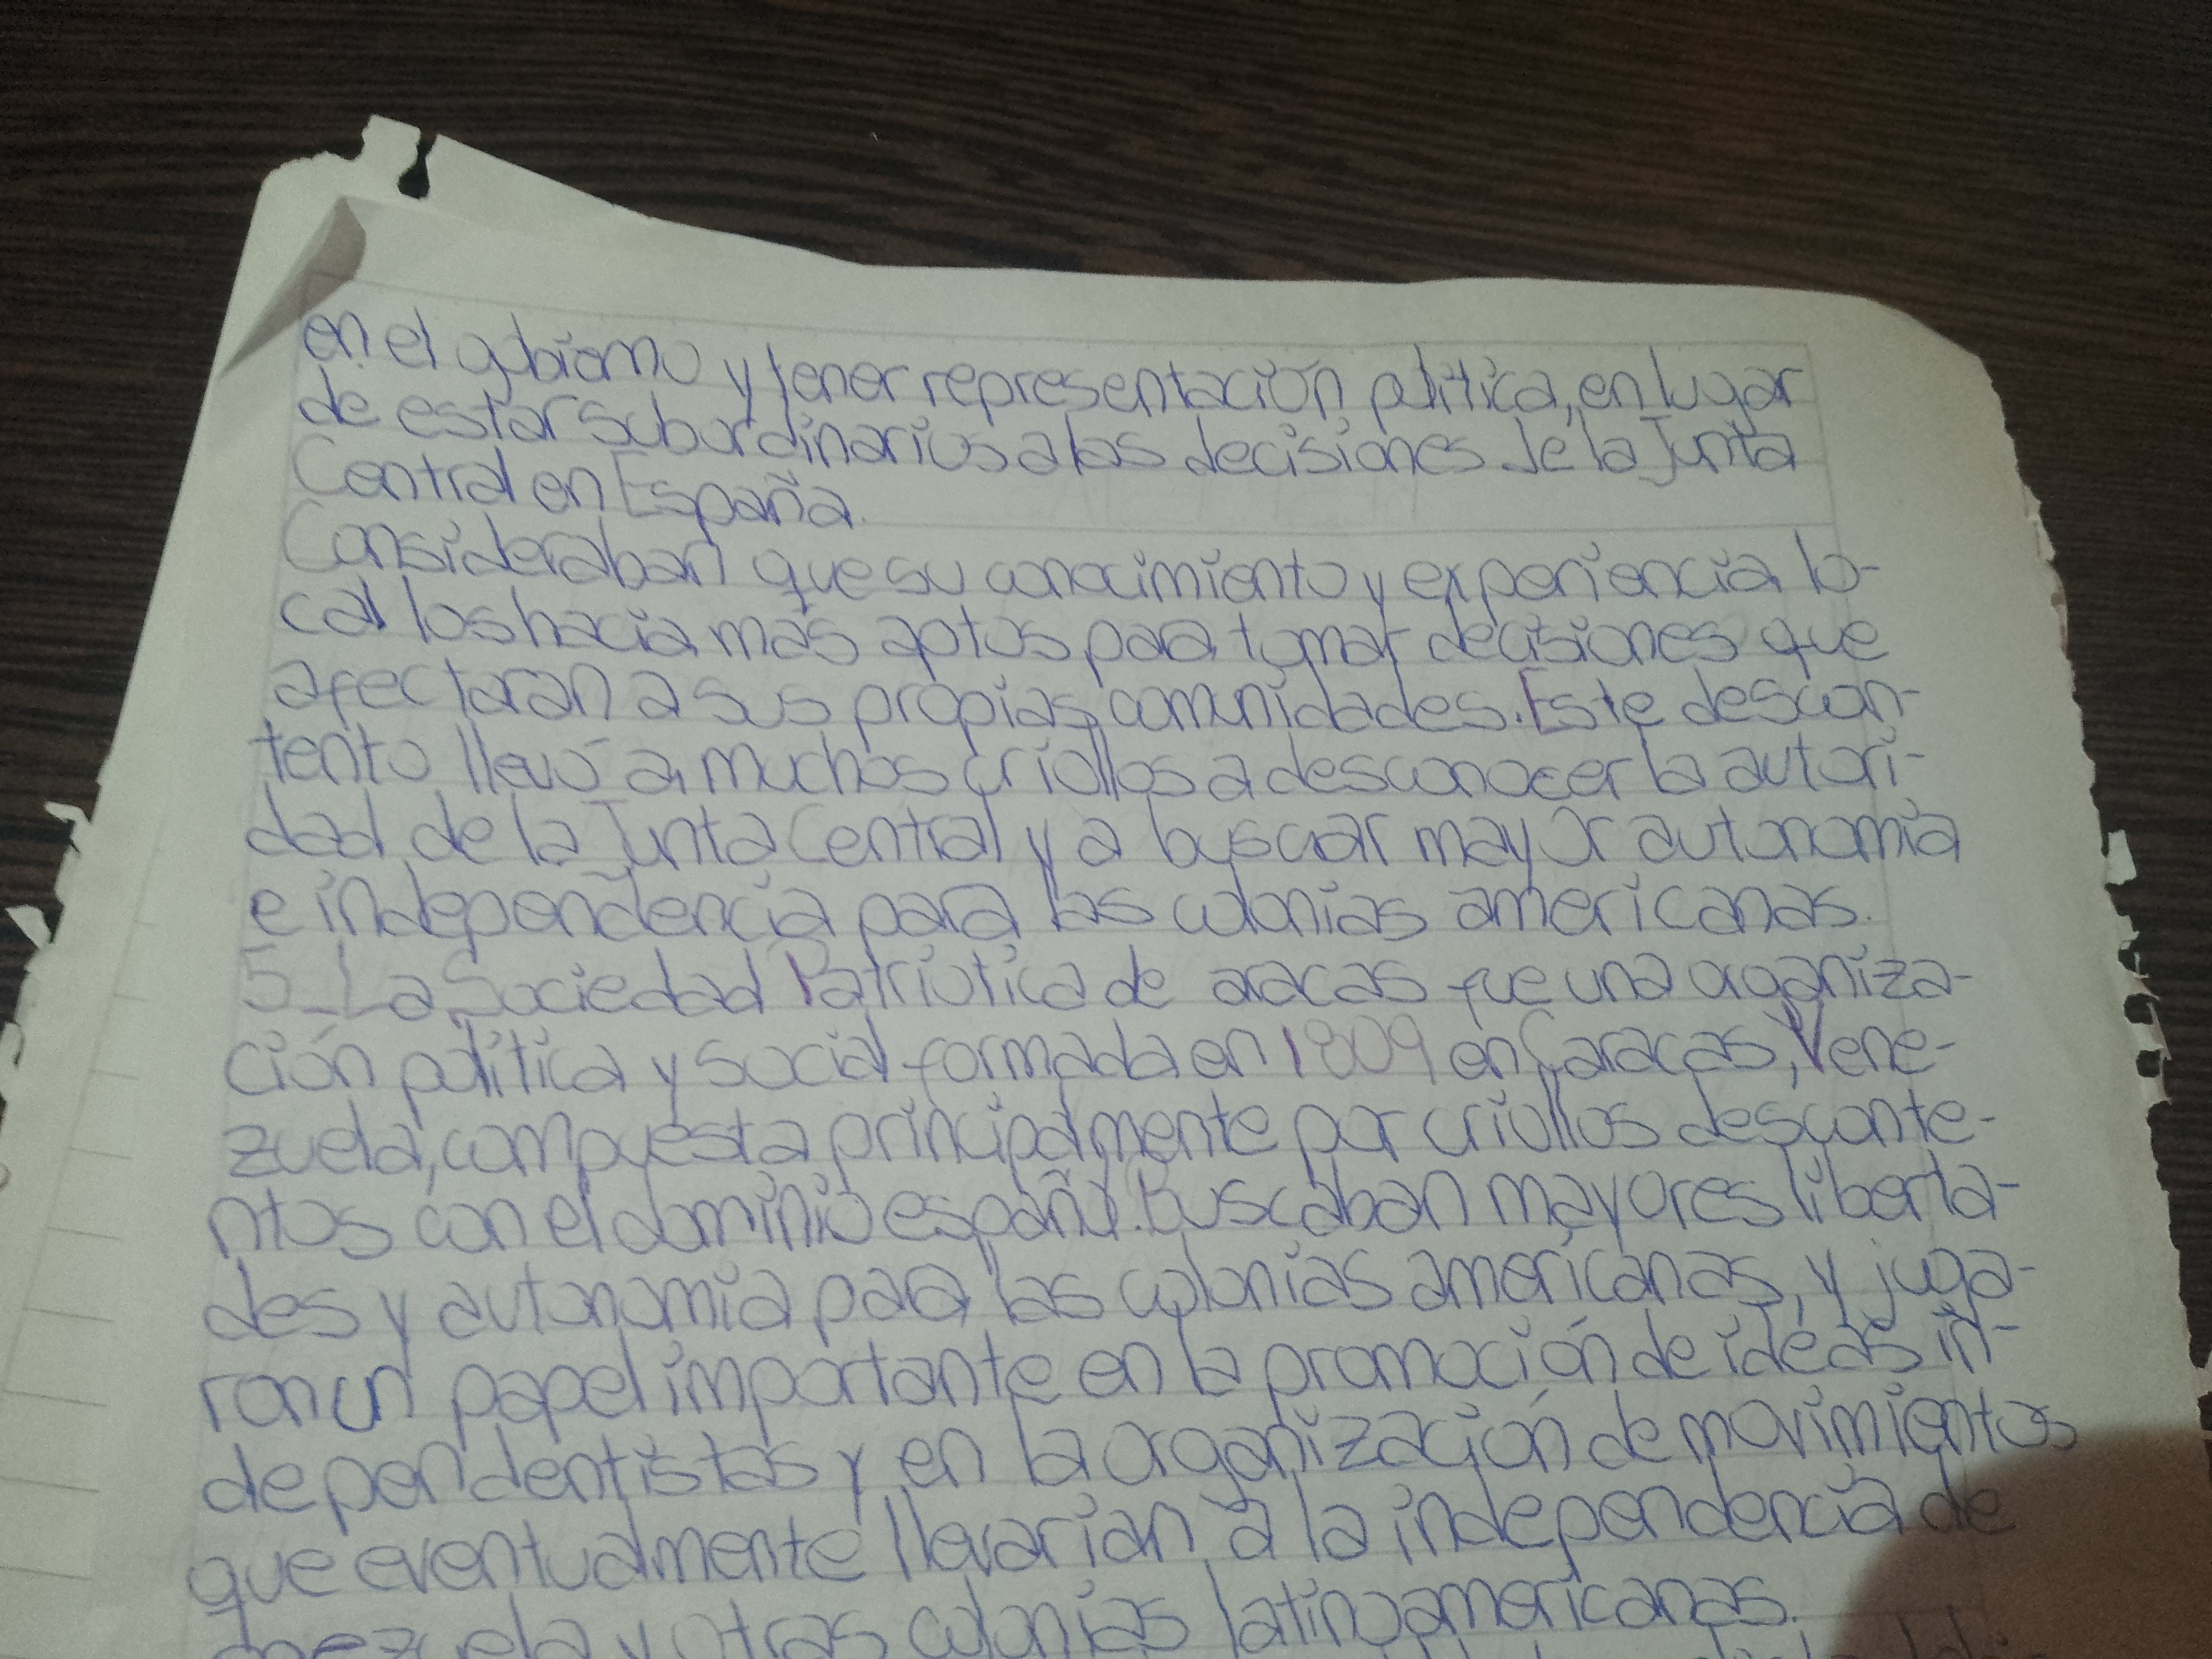 en el gobierno y tener representación política, en lugar
de estar subordinarios a las decisiones de la Junta
Central en España.
Consideraban que su conocimiento y experiencia lo-
cal los hacía más aptos para tomar decisiones que
afectaran a sus propias comunidades. Este descon-
tento llevó a muchos criollos a desconocer la autori-
dad de la Junta Central y a buscar mayor autonomía
e independencia para las colonias americanas.
5_ La Sociedad Patriótica de aracas fue una organiza-
ción política y social formada en 1809 en Caracas, Vene-
zuela, compuesta principalmente por criollos desconte-
ntos con el dominio español. Buscaban mayores liberta-
des y autonomía para las colonias americanas, y juga-
ron un papel importante en la promoción de ideas in-
dependentistas y en la organización de movimientos
que eventualmente llevarían a la independencia de
y otras colonias latinoamericanas.